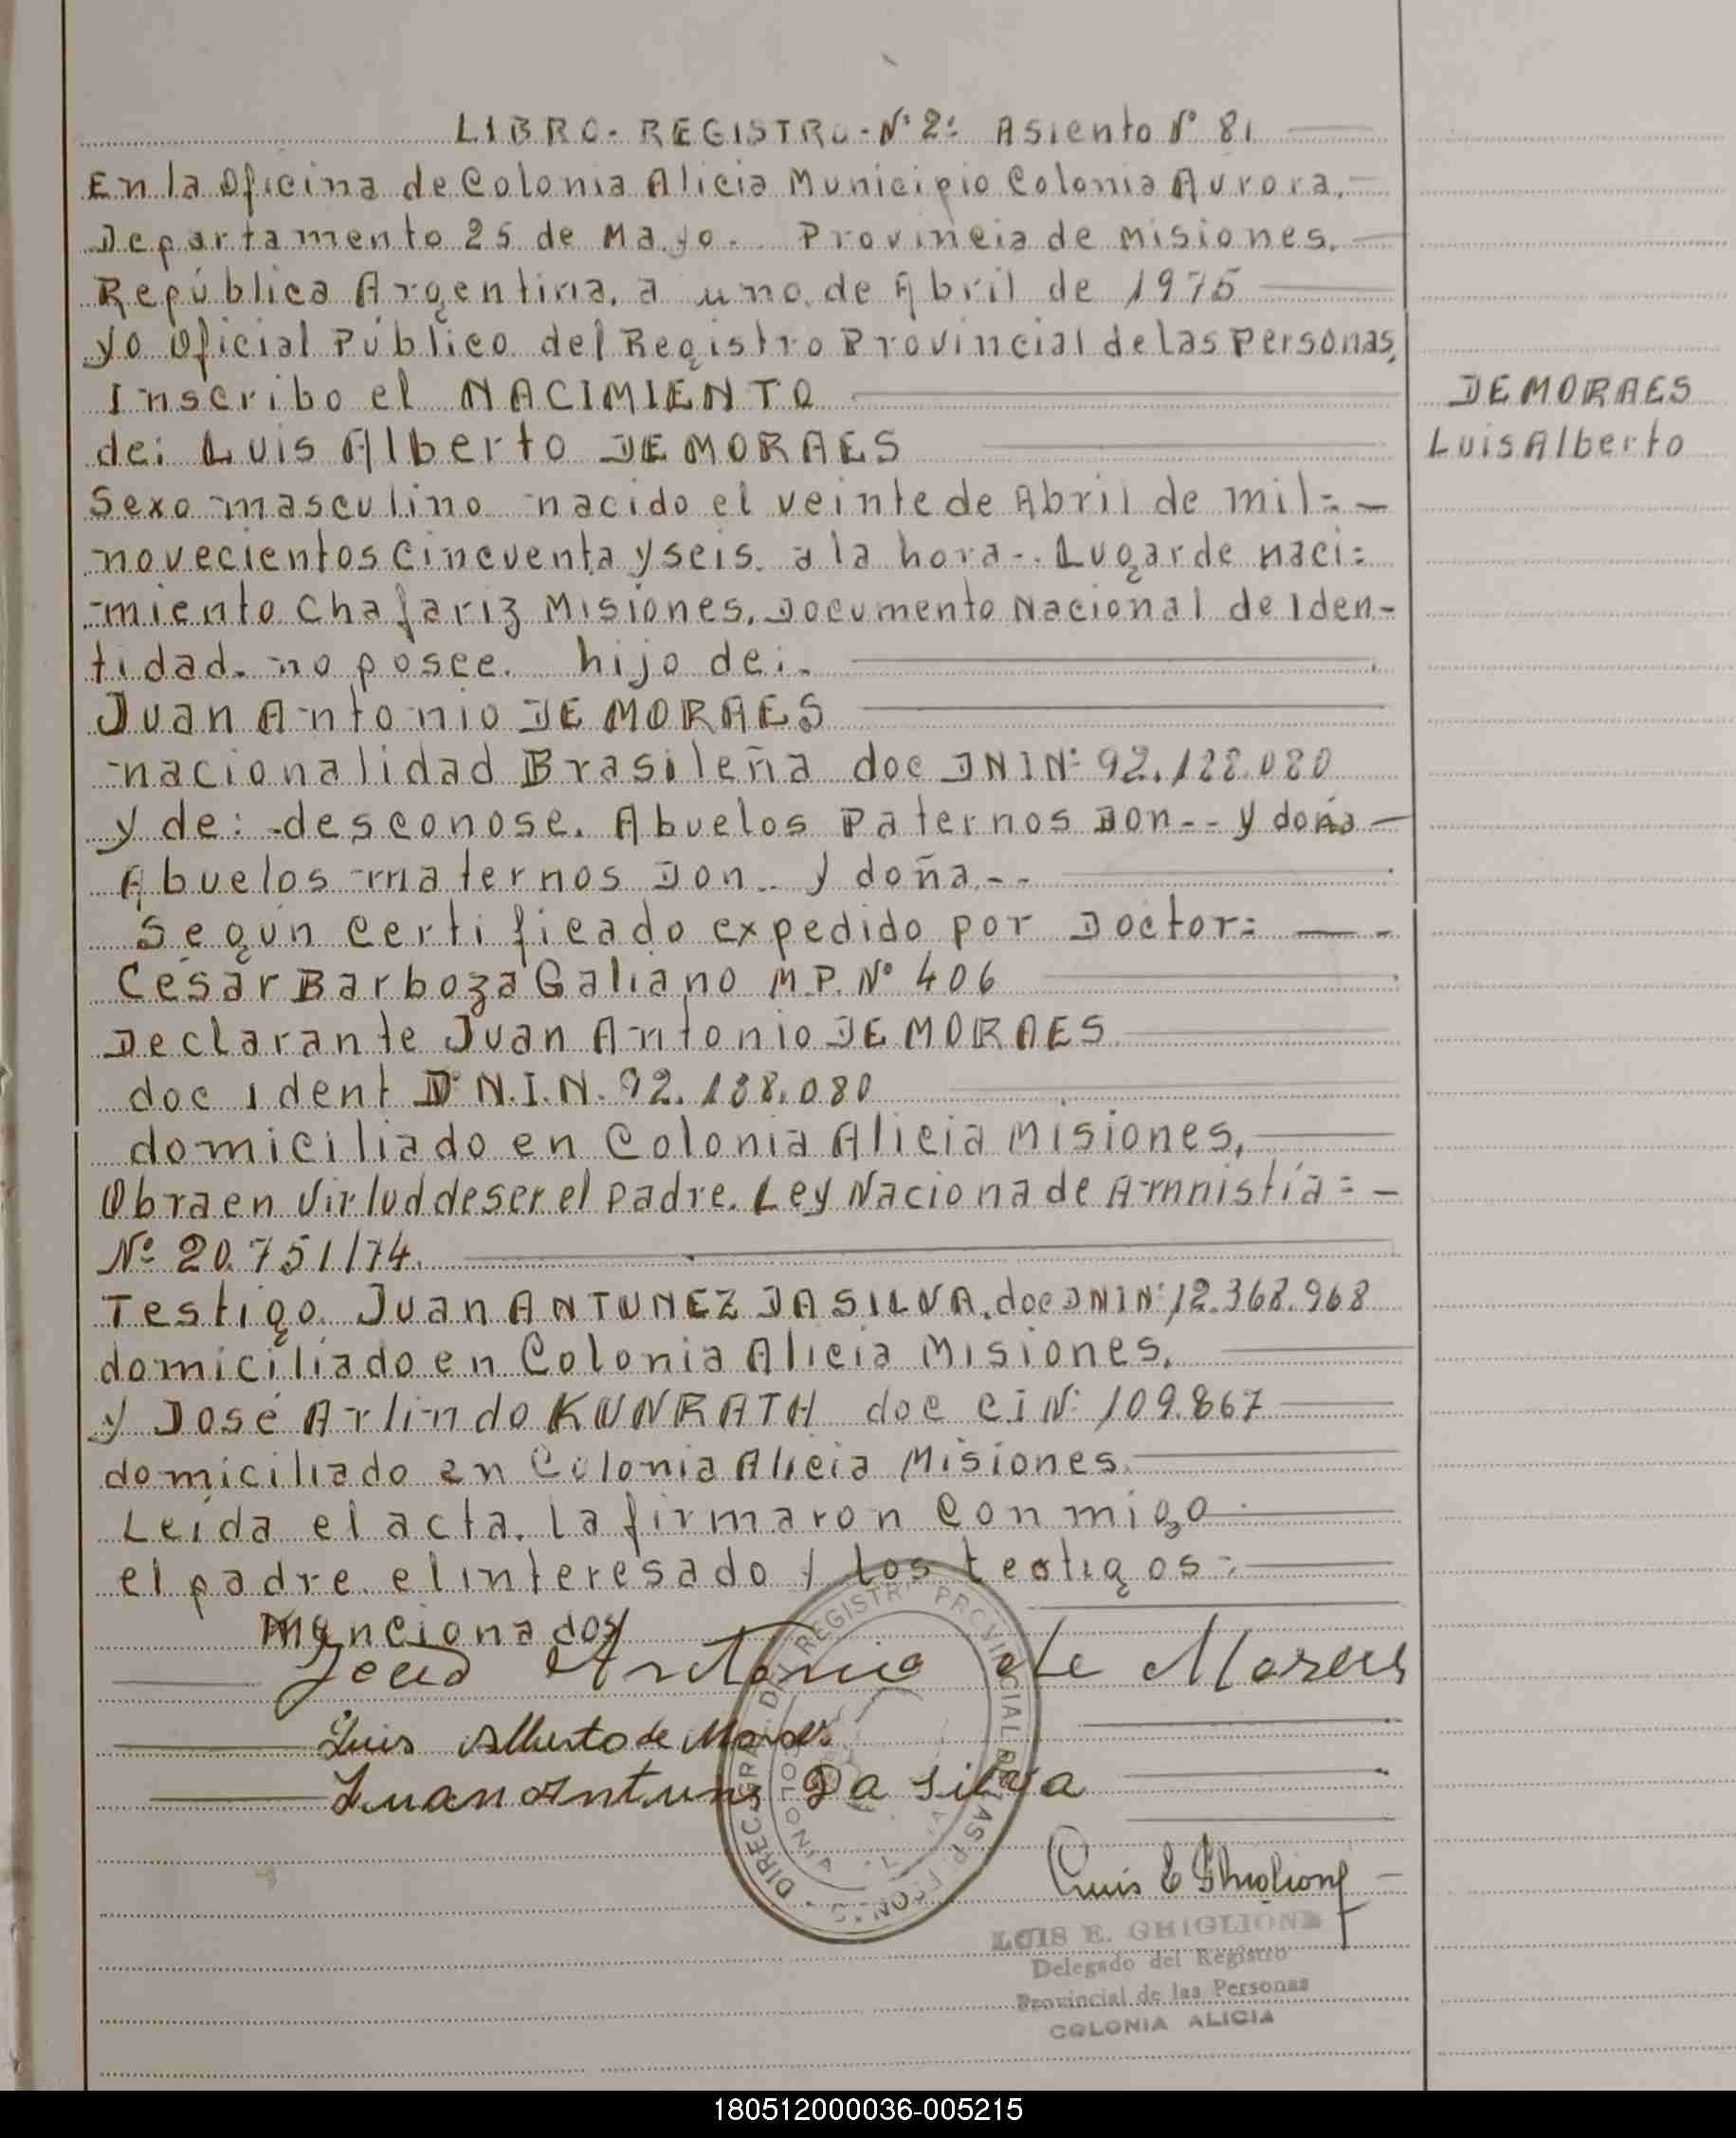 LIBRO-REGISTRO-Nº2: Asiento Nº 81
En la Oficina de Colonia Alicia Municipio Colonia Aurora.-
Departamento 25 de Mayo. Provincia de Misiones.
República Argentina. a uno de Abril de 1975
yo Oficial Público del Registro Provincial de las Personas,
Inscribo el NACIMIENTO
DE MORAES
de: Luis Alberto DE MORAES
Luis Alberto
Sexo masculino nacido el veinte de Abril de mil=-
novecientos cincuenta y seis. a la hora-. Lugar de naci=
miento Chafariz Misiones. Documento Nacional de Iden-
tidad. no posee. hijo de:.
Juan Antonio DE MORAES
nacionalidad Brasileña doc DNI Nº 92.188.080
y de: -desconose. Abuelos Paternos Don-- y doña-
Abuelos maternos Don-- y doña.--
Según Certificado expedido por Doctor=
César Barboza Galiano M.P. Nº 406
Declarante Juan Antonio DE MORAES
doc ident D.N.I.N. 92.188.080
domiciliado en Colonia Alicia Misiones,
Obra en Virtud de ser el padre. Ley Naciona de Amnistía=-
Nº 20.751/74.
Testigo. Juan ANTUNEZ DA SILVA. doc DNI Nº 12.368.968
domiciliado en Colonia Alicia Misiones.
y José Arlindo KUNRATH doc C.I Nº 109.867
domiciliado en Colonia Alicia Misiones.
Leída el acta. la firmaron Conmigo
el padre. el interesado y los testigos-
Mencionados
Antonio de Moraes
Luis Alberto de Moraes
Juan Antunes Da Silva
DIREC. GRAL. DEL REGISTRO PROVINCIAL DE LAS PERSONAS
Luis E Ghiglione
LUIS E. GHIGLIONE
Delegado del Registro
Provincial de las Personas
COLONIA ALICIA
180512000036-005215